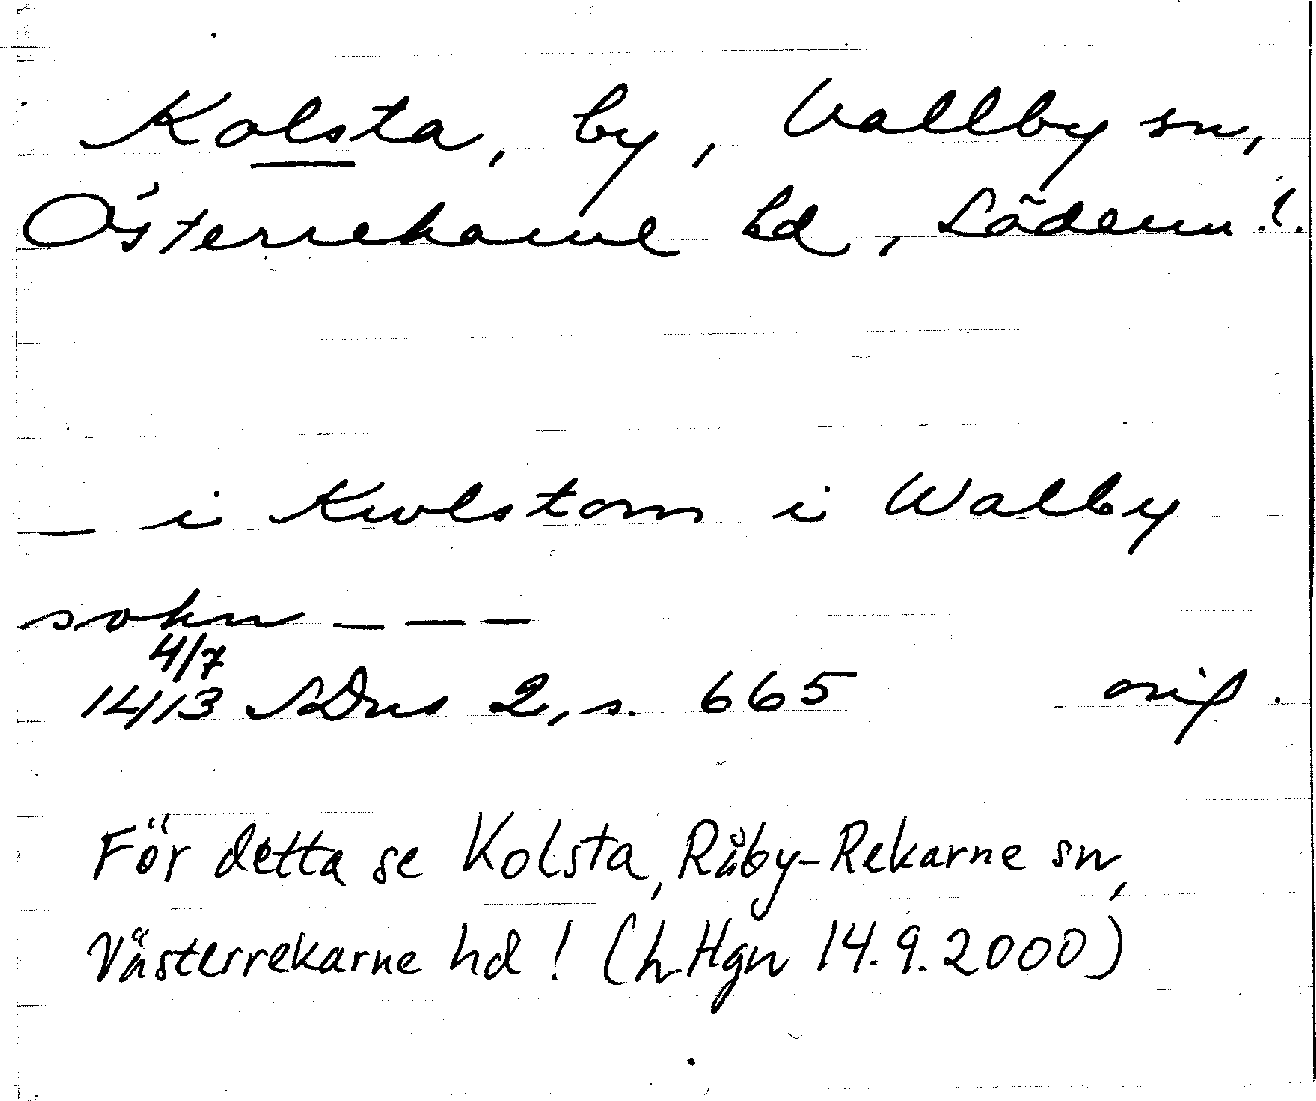 Kolsta, by, Vallby sn,
Österrekarne hd, Söderm.l.
_ i Kwlstom i Walby
sokn _ _ _
4/7
1413 SDns 2, s. 665 orig.
För detta se Kolsta, Råby-Rekarne sn,
Västerrekarne hd! (LHgn 14.9.2000)